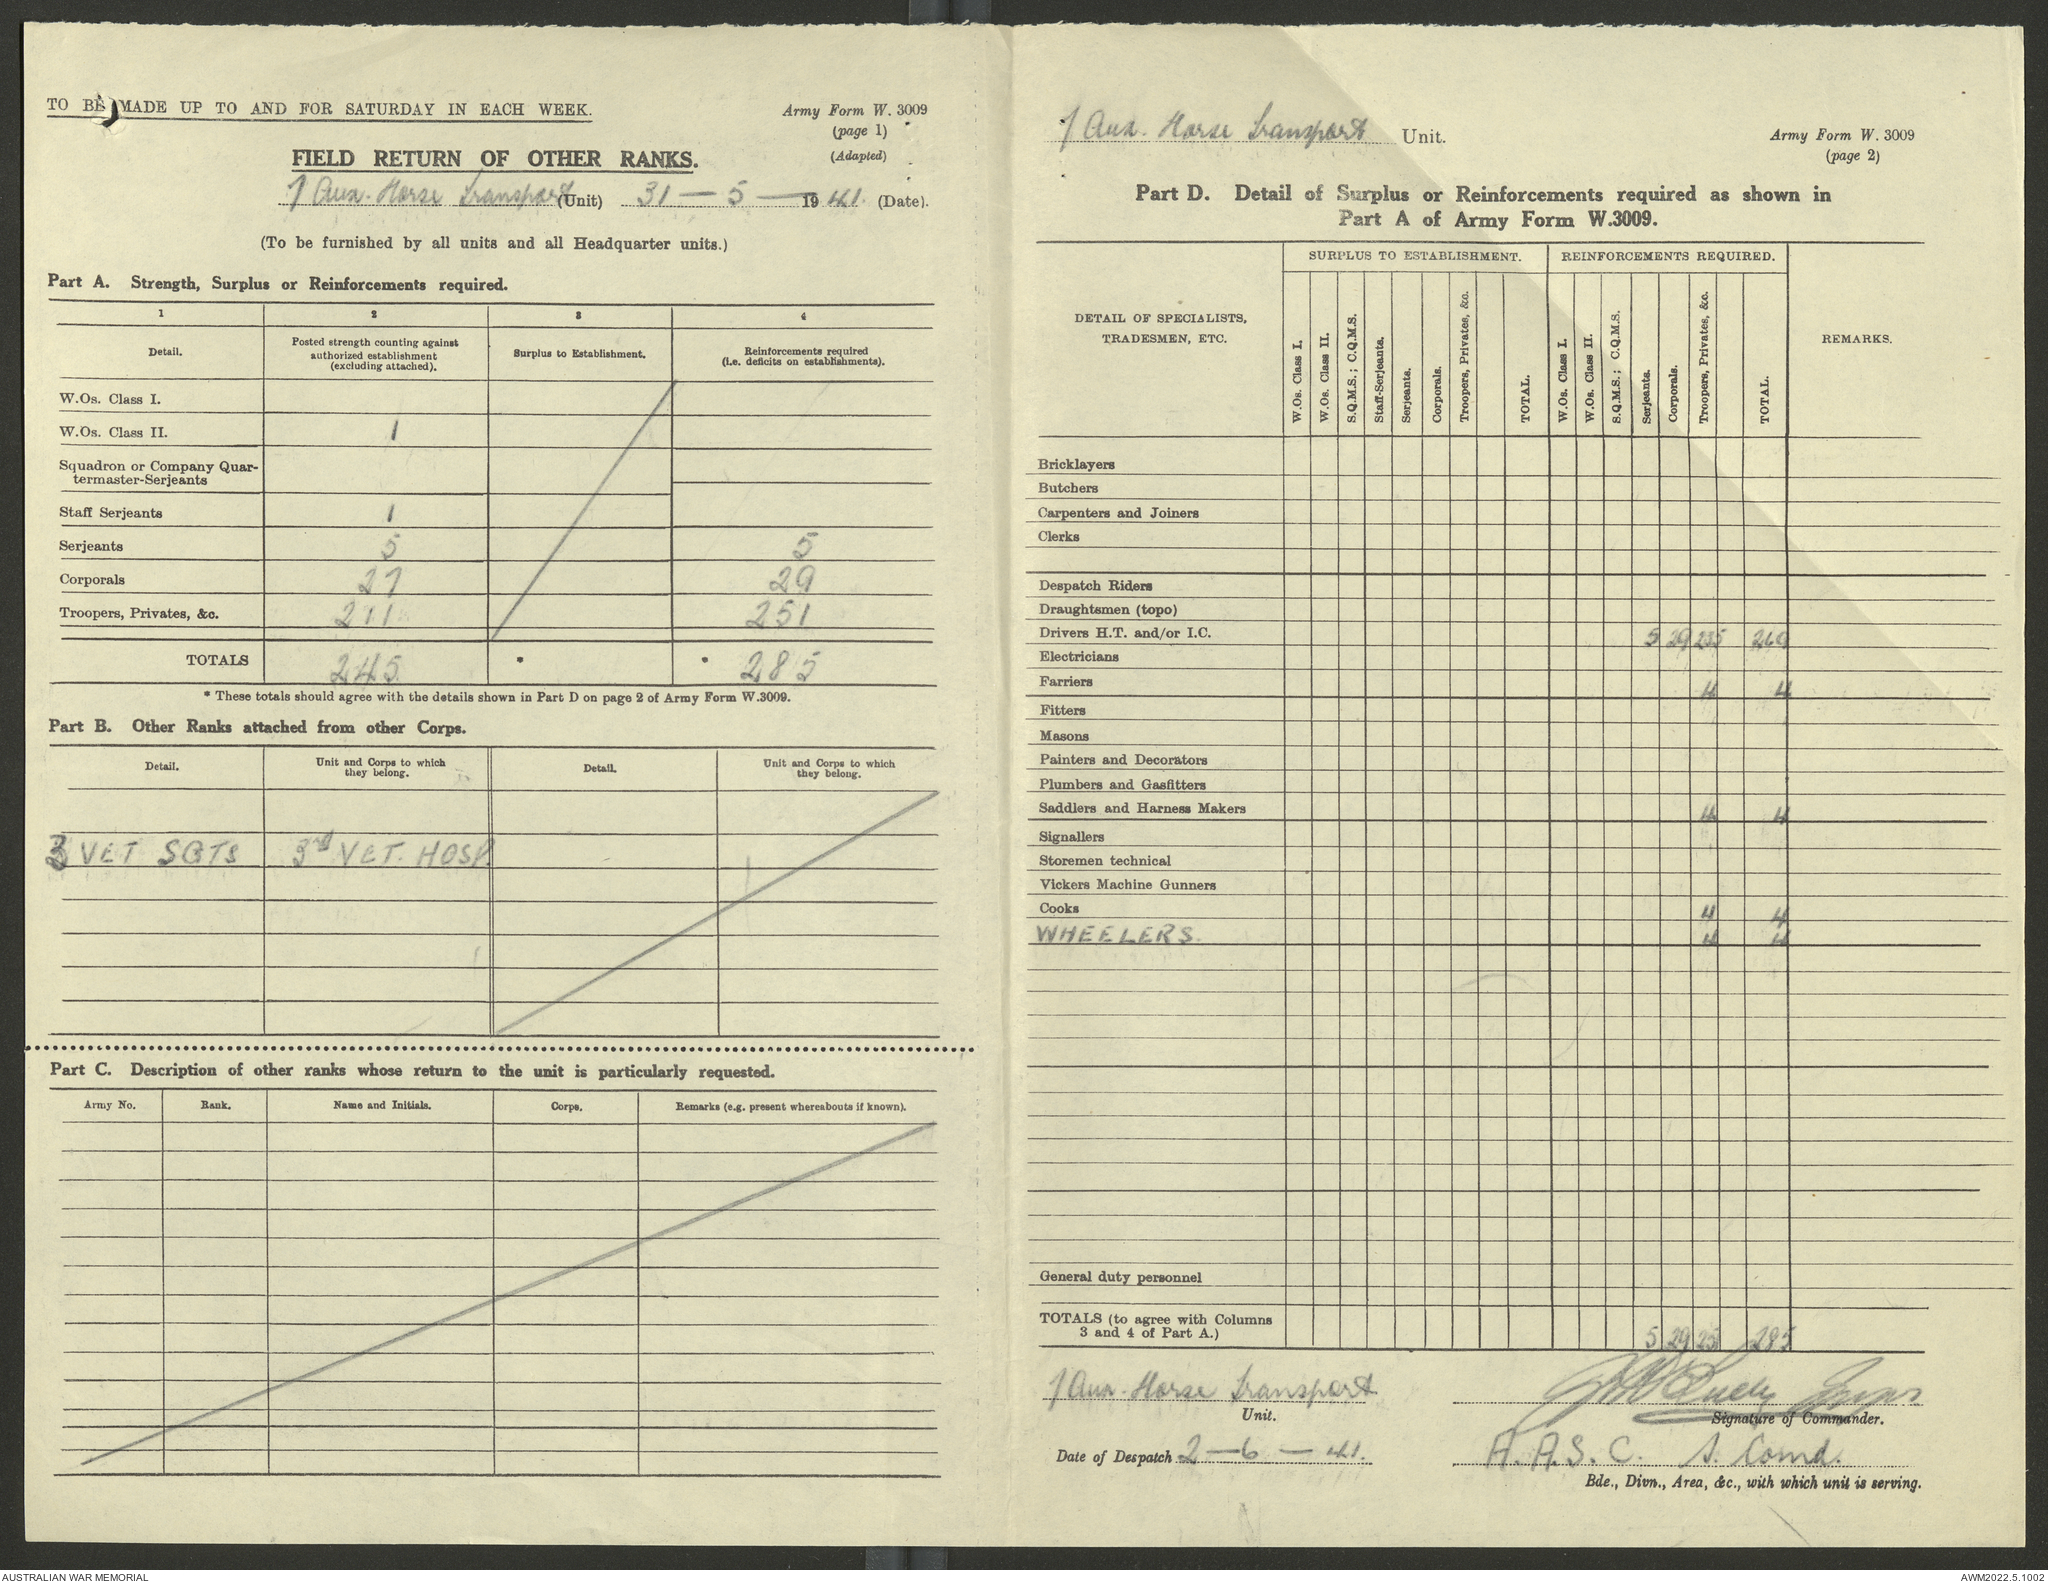 TO BE MADE UP TO AND FOR SATURDAY IN EACH WEEK.
Army Form W. 3009
(page 1)
(Adapted)
FIELD RETURN OF OTHER RANKS.
1 Aux. Horse Transport (Unit) 31 — 5 — 1941. (Date).
(To be furnished by all units and all Headquarter units.)
Part A. Strength, Surplus or Reinforcements required.
1 2 3 4
Detail. Posted strength counting against authorized establishment (excluding attached). Surplus to Establishment. Reinforcements required (i.e. deficits on establishments).
W.Os. Class I.
W.Os. Class II. 1
Squadron or Company Quar-
termaster-Serjeants
Staff Serjeants 1
Serjeants 5 5
Corporals 27 29
Troopers, Privates, &c. 211 251
TOTALS 245 * * 285
* These totals should agree with the details shown in Part D on page 2 of Army Form W.3009.
Part B. Other Ranks attached from other Corps.
Detail. Unit and Corps to which they belong. Detail. Unit and Corps to which they belong.
3 VET SGTS 3rd VET. HOSP.
Part C. Description of other ranks whose return to the unit is particularly requested.
Army No. Rank. Name and Initials. Corps. Remarks (e.g. present whereabouts if known).
1 Aux. Horse Transport Unit.
Army Form W. 3009
(page 2)
Part D. Detail of Surplus or Reinforcements required as shown in
Part A of Army Form W.3009.
DETAIL OF SPECIALISTS, TRADESMEN, ETC. SURPLUS TO ESTABLISHMENT. REINFORCEMENTS REQUIRED. REMARKS.
W.Os. Class I. W.Os. Class II. S.Q.M.S.; C.Q.M.S. Staff-Serjeants. Serjeants. Corporals. Troopers, Privates, &c. TOTAL. W.Os. Class I. W.Os. Class II. S.Q.M.S.; C.Q.M.S. Serjeants. Corporals. Troopers, Privates, &c. TOTAL.
Bricklayers
Butchers
Carpenters and Joiners
Clerks
Despatch Riders
Draughtsmen (topo)
Drivers H.T. and/or I.C. 5 29 235 269
Electricians
Farriers 4 4
Fitters
Masons
Painters and Decorators
Plumbers and Gasfitters
Saddlers and Harness Makers 4 4
Signallers
Storemen technical
Vickers Machine Gunners
Cooks 4 4
WHEELERS. 4 4
General duty personnel
TOTALS (to agree with Columns
3 and 4 of Part A.) 5 29 251 285
1 Aux. Horse Transport
Unit.
Signature of Commander.
Date of Despatch 2 — 6 — 41.
A.A.S.C. S. Comd.
Bde., Divn., Area, &c., with which unit is serving.
AUSTRALIAN WAR MEMORIAL
AWM2022.5.1002